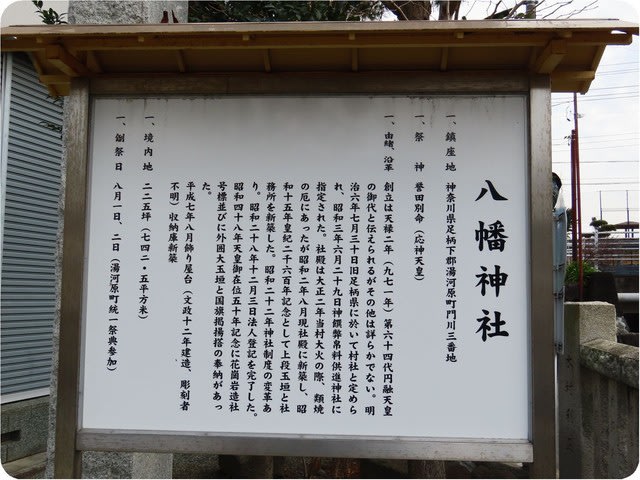 八幡神社
一、鎮座地　神奈川県足柄下郡湯河原町門川三番地
一、祭　神　誉田別命（応神天皇）
一、由緒、沿革　創立は天禄二年（九七一年）第六十四代円融天皇
の御代と伝えられるがその他は詳らかでない。明
治六年七月三十日旧足柄県に於いて村社と定めら
れ、昭和三年六月二十九日神饌幣帛料供進神社に
指定された。社殿は大正二年当村大火の際、類焼
の厄にあったが昭和二年八月現社殿に新築し、昭
和十五年皇紀二千六百年記念として上段玉垣と社
務所を新築した。昭和二十二年神社制度の変革あ
り。昭和二十八年十二月三日法人登記を完了した。
昭和四十八年天皇御在位五十年記念に花崗岩造社
号標並びに外囲大玉垣と国旗掲揚搭の奉納があっ
た。
平成七年八月飾り屋台（文政十二年建造、彫刻者
不明）収納庫新築
一、境内地　二二五坪（七四二・五平方米）
一、例祭日　八月一日、二日（湯河原町統一祭典参加）